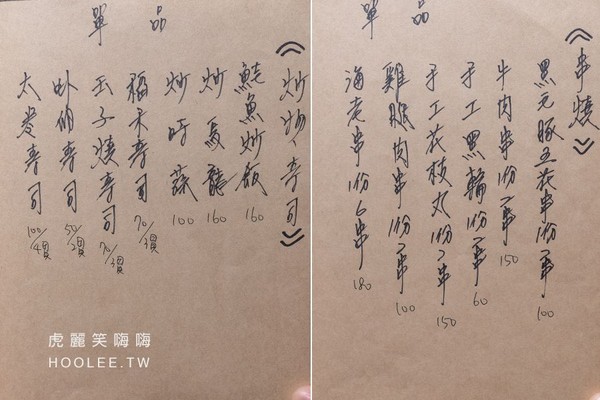 單品
《炒物、壽司》
鮭魚炒飯 160
炒烏龍 160
炒時蔬 100
稻禾壽司 70/3貫
玉子燒壽司 70/3貫
卦納壽司 50/2貫
太卷壽司 100/4貫
虎麗笑嗨嗨
HOOLEE.TW
單品
《串燒》
黑元豚五花串1份2串 100
牛肉串1份2串 150
手工黑輪1份2串 60
手工花枝丸1份2串 150
雞腿肉串1份2串 100
海老串1份6串 180